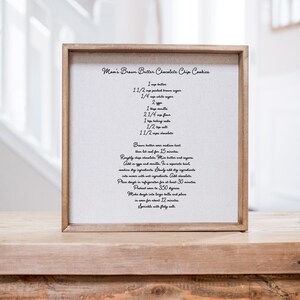 Mom's Brown Butter Chocolate Chip Cookies
1 cup butter
1 1/2 cup packed brown sugar
1/4 cup white sugar
2 eggs
1 tbsp vanilla
2 1/4 cup flour
1 tsp baking soda
1/2 tsp salt
1 1/2 cups chocolate
Brown butter over medium heat
then let cool for 15 minutes.
Roughly chop chocolate. Mix butter and sugars.
Add in eggs and vanilla. In a separate bowl,
combine dry ingredients. Slowly add dry ingredients
into mixer with wet ingredients. Add chocolate.
Place dough in refrigerator for at least 30 minutes.
Preheat oven to 350 degrees.
Make dough into large balls and place
in oven for about 12 minutes.
Sprinkle with flaky salt.